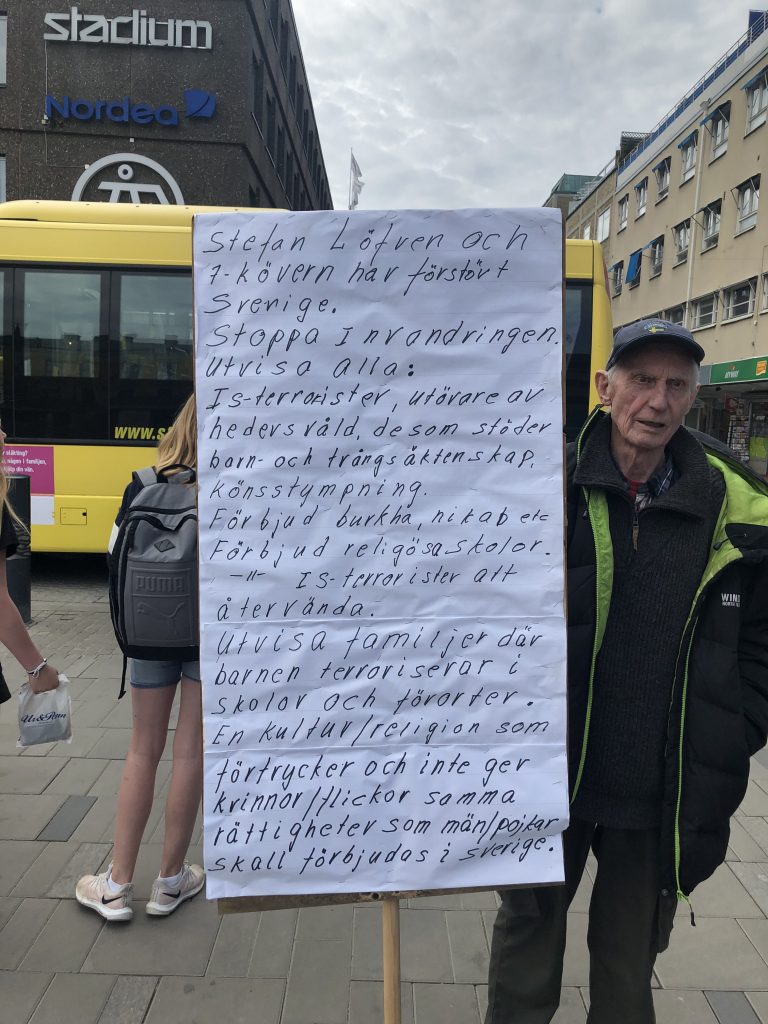 stadium
Nordea
Stefan Löfven och
7-kövern har förstört
Sverige.
Stoppa Invandringen.
Utvisa alla:
Is-terrorister, utövare av
hedersvåld, de som stöder
barn- och tvångsäktenskap,
könsstympning.
Förbjud burkha, nikab etc
Förbjud religösa skolor.
-"- Is-terrorister att
återvända.
Utvisa familjer där
barnen terroriserar i
skolor och förorter.
En kultur/religion som
förtrycker och inte ger
kvinnor/flickor samma
rättigheter som män/pojkar
skall förbjudas i sverige.
www.s
PUMA
Ur&Penn
WIN